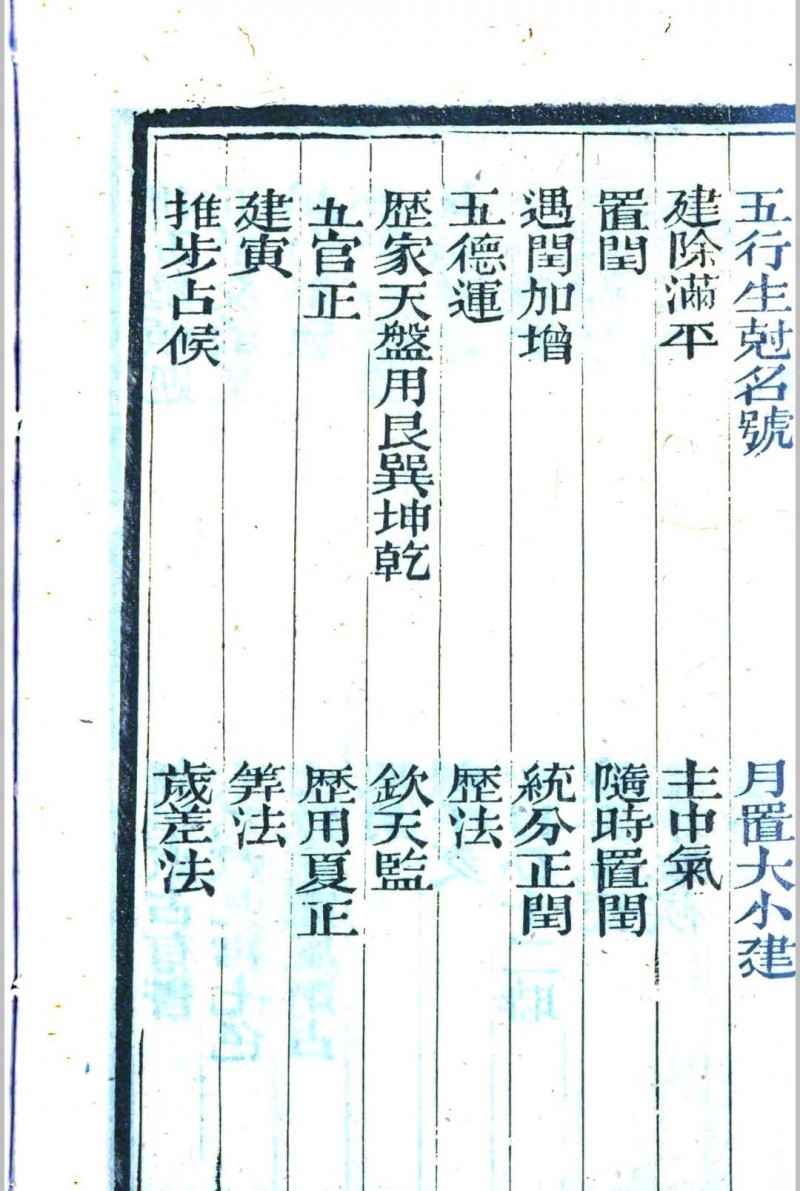 五行生尅名號
月置大小建
建除滿平
主中氣
置閏
隨時置閏
遇閏加增
統分正閏
五德運
歴法
歴家天盤用艮巽坤乾
欽天監
五官正
歴用夏正
建寅
筭法
推步占候
歲差法